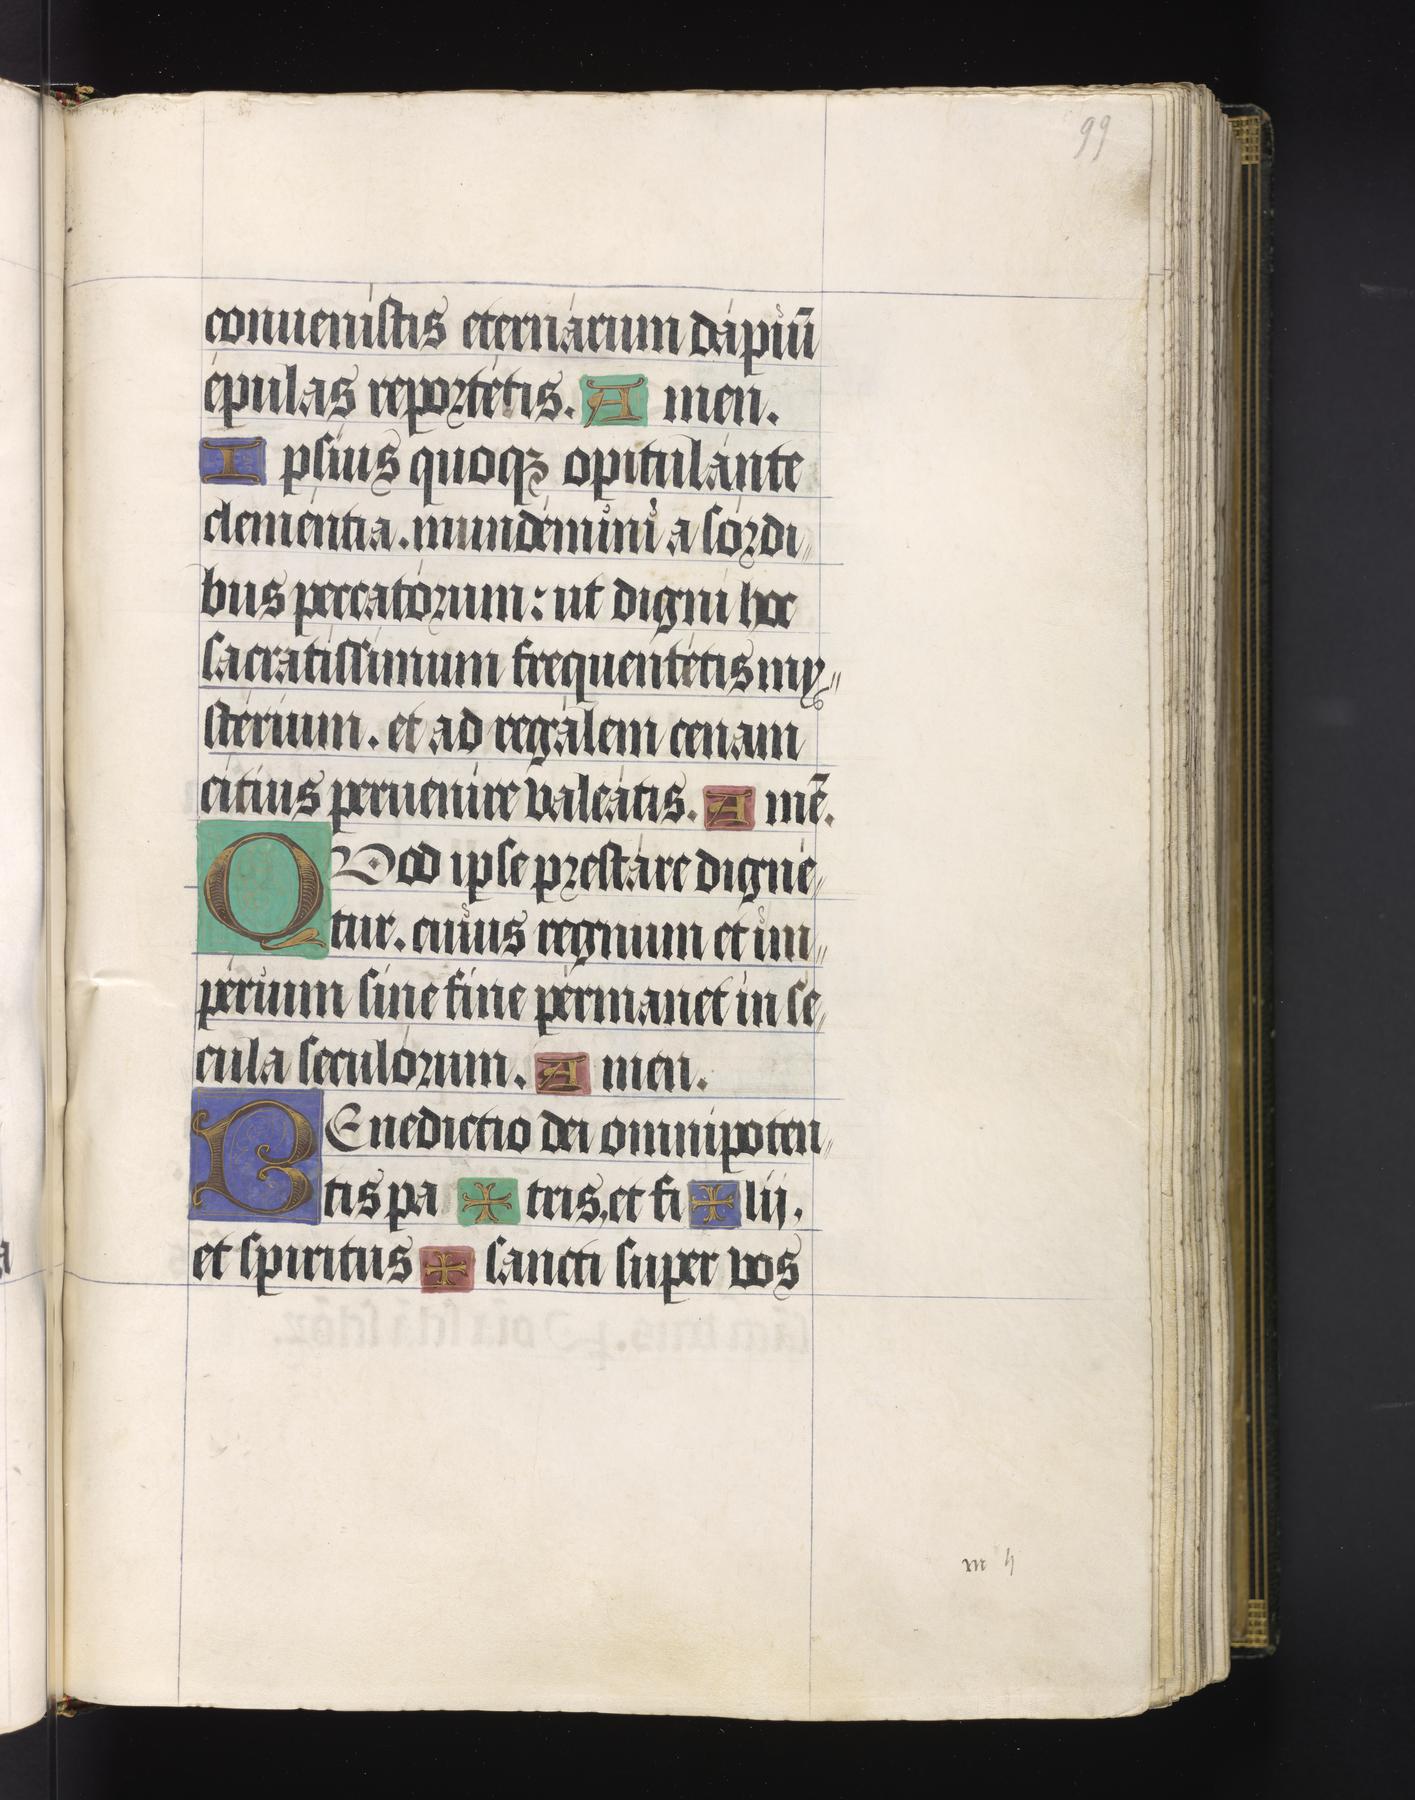 99
conuenístis eternárum dápiū
épulas reportétis. A men.
I psíus quoqꝫ opitulánte
cleméntia. mundémini a sórdi„
bus peccatórum: ut digni hoc
sacratíssimum frequentétis my„
stérium. et ad regálem cenam
cítius peruenire valeátis. A mē.
QVod ipse prestáre digné„
tur. cuius regnum et im„
périum síne fíne pérmanet in sé„
cula seculórum. A men.
BEnedictio dei omnipoten„
tis pa ✠ tris, et fi ✠ lij.
et spíritus ✠ sancti super vos
m 4